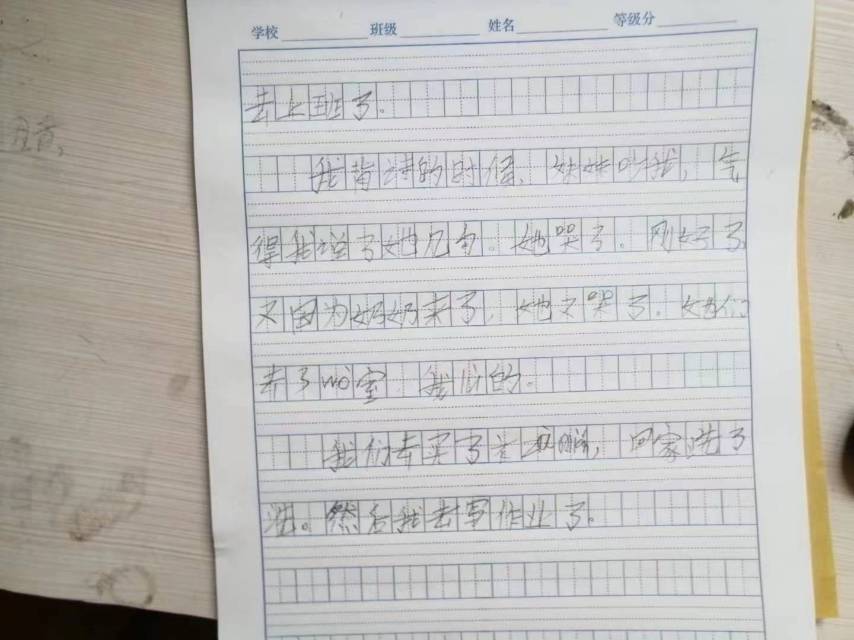 学校 班级 姓名 等级分
去上班了。
我背诗的时候,妹妹叫我,气
得我说了她几句。她哭了。刚好了
又因为奶奶来了,她又哭了。她们
去了wo室 我 的.
我们去买了 , 回家洗了
洗。然后我去写作业了。